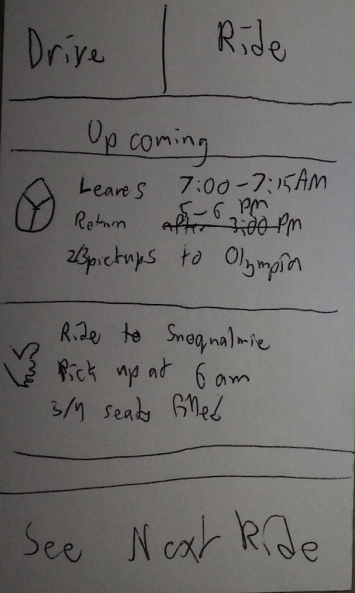 Drive
Ride
Upcoming
Leaves 7:00-7:15 AM
5-6 PM
Return after 3:00 PM
2/3 pickups to Olympia
Ride to Snoqualmie
Pick up at 6 am
3/4 seats filled
See Next Ride